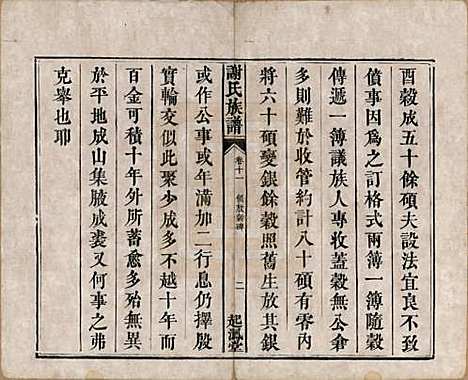 酉穀成五十餘碩夫設法宜良不致
債事因爲之訂格式兩簿一簿隨穀
傳遞一簿議族人專收蓋穀無公倉
多則難於收管約計八十碩有零內
將六十碩變銀餘穀照舊生放其銀
謝氏族譜
卷十一
二
起鳳堂
或作公事或年滿加二行息仍擇殷
實輪交似此聚少成多不越十年而
百金可積十年外所蓄愈多殆無異
於平地成山集腋成裘又何事之弗
克舉也耶